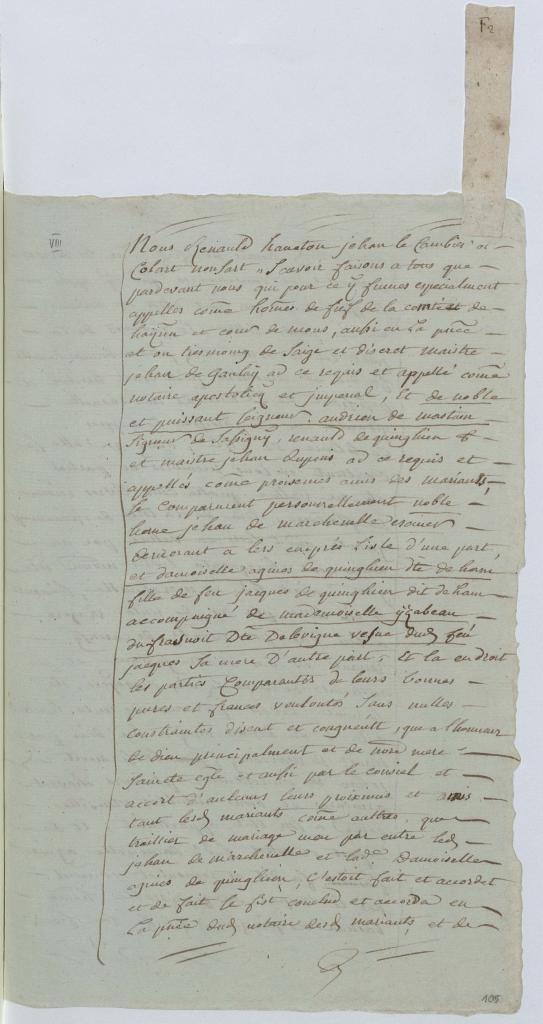 F2
VIII
Nous Renauld haneton jehan le Cambier et
Colart monsart „ Scavoir faisons a tous que
pardevant nous qui pour ce y fumes especialment
appellez come homes de fief de la comté et de
haynn et cour de mons, aussi en la pnce
et on tiesmoing de Saige et discret maistre
jehan de ad ce requis et appellé comē
notaire apostolicq et imperial, Et de noble
et puissant Seigneur andrieu de mastain
Signeur de Sassigny, renauld de quinghien &
et maistre jehan Lupens ad ce requis et
appellés come proismes amis des mariants,
Se comparurent personnellement noble
home jehan de marchenelle escuier
demorant a lers emprés Liste d'une part,
et damoiselle agnes de quinghien dte de ham
fille de feu jacques de quinghien dit de ham
accompaigné de mademoiselle yzabeau
du frasnoit Dte Delevigne vesve dudt feu
jacques Sa mere D'autre part, Et la endroit
les parties Comparantes de leurs bonnes
pures et frances voulontés Sans nulles
constraintes disent et congneult, que a l'honneur
de dieu principalment et de nore mere
Saincte eglē et aussi par le conseil et
accort d'aulcuns leurs proximes et amis
tant lesdt mariants comē aultres, que
traittier de mariage meu par entre ledt
jehan de marchenelle et ladt Damoiselle
agnes de quinghien, S'estoit fait et accordet
et de fait le fist conclud et accorda en
La pnce dudt notaire desdt mariants et de
105